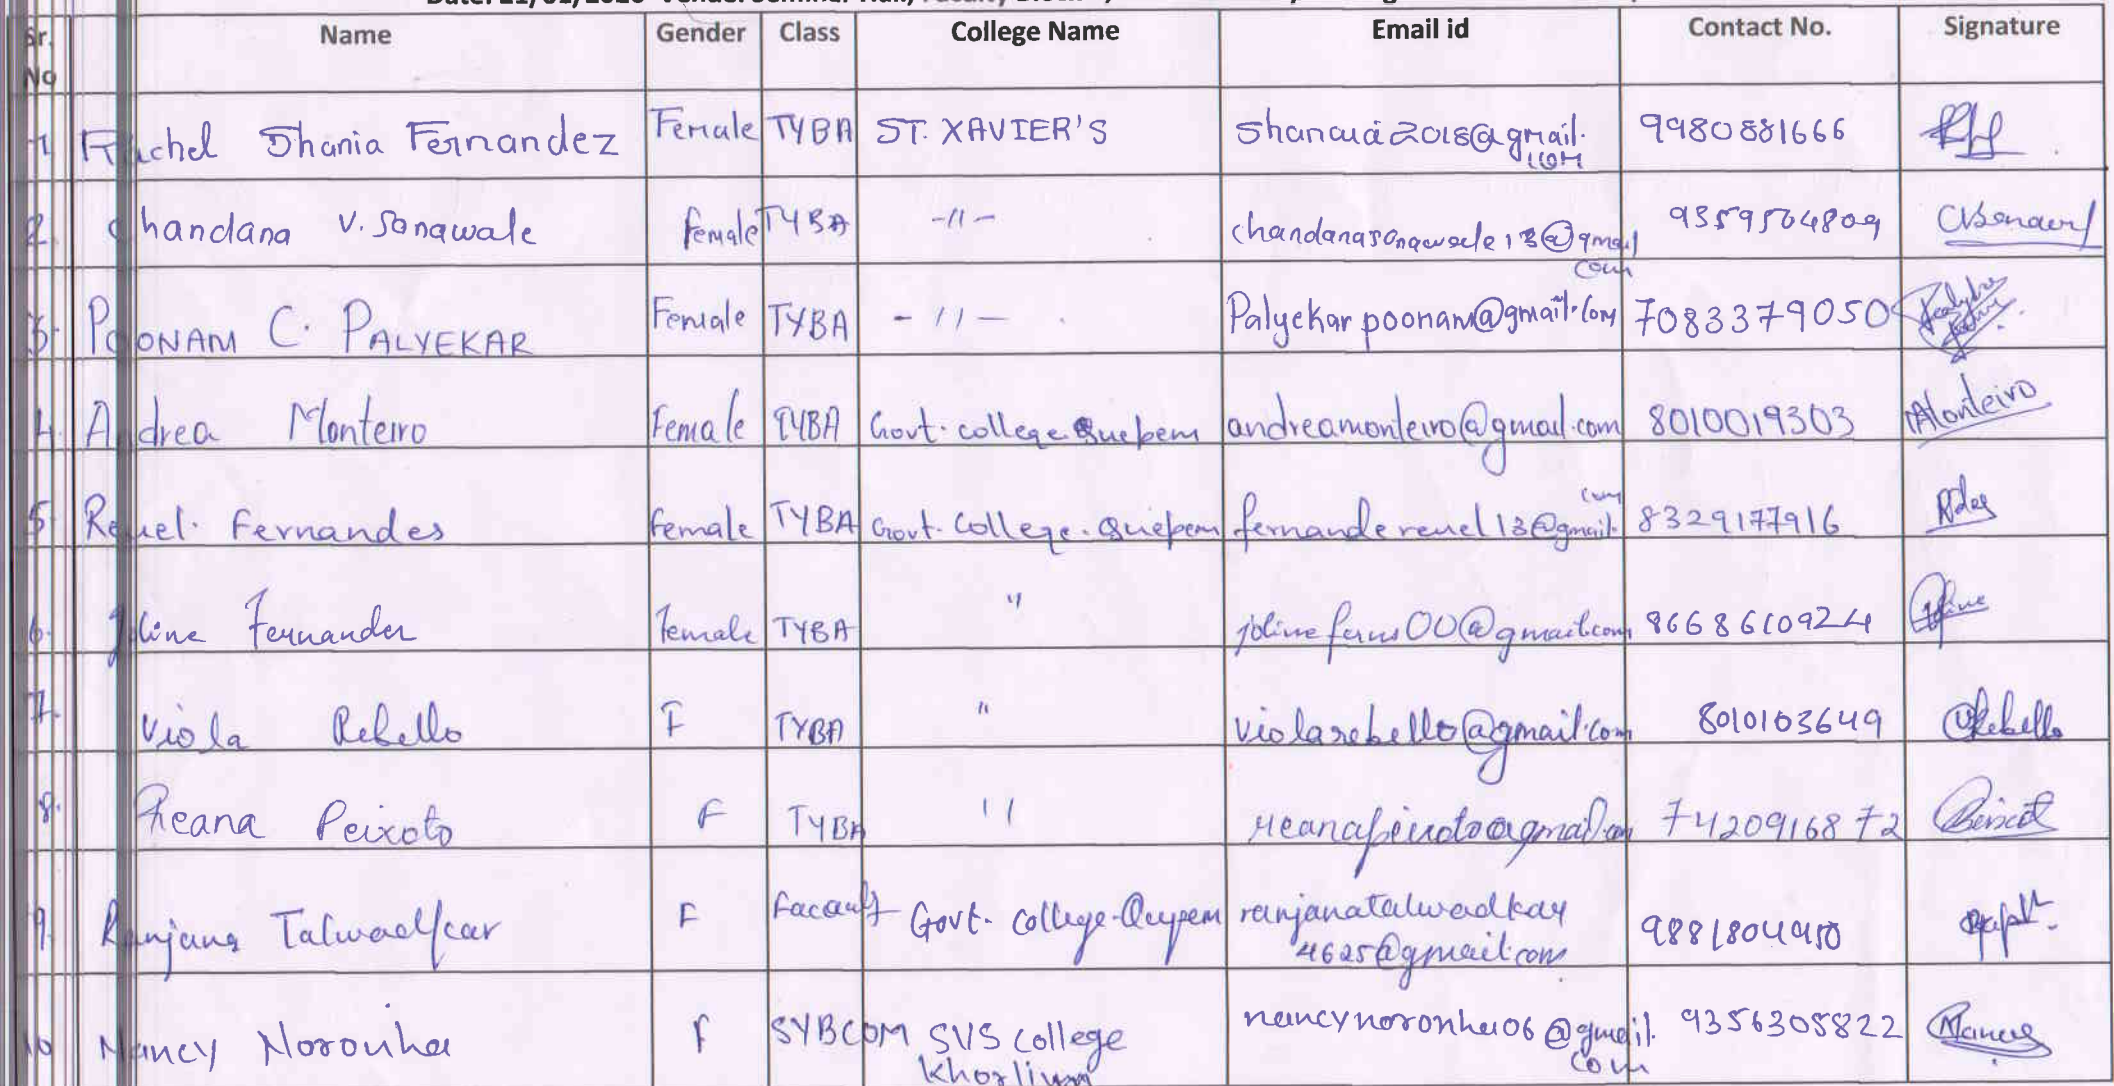 Sr. No Name Gender Class College Name Email id Contact No. Signature
1 Rachel Shania Fernandez Female TYBA ST. XAVIER'S 9980881666
2. Chandana V. Sonawale Female TYBA -11- chandanasonawale13@gmail.com 9359504809
3. POONAM C. PALYEKAR Female TYBA -11- Palyekarpoonam@gmail.com 7083379050
4. Andrea Monteiro Female TYBA Govt. college Quepem andreamonteiro@gmail.com 8010019303 AMonteiro
5 Requel. Fernandes Female TYBA Govt. College. Quepem 8329177916
6. Joline Fernandes Female TYBA " jolineferns00@gmail.com 8668610924
7. Viola Rebello F TYBA " violarebello@gmail.com 8010103649 VRebello
8. Reana Peixoto F TYBA 11 reanapeixoto@gmail.com 7420916872
9. Ranjana Talwadkar F Govt. College-Quepem ranjanatalwadkar
4625@gmail.com
10 Nancy Noronha F SYBCOM SVS College nancynoronha06@gmail.com 9356305822 Nancy